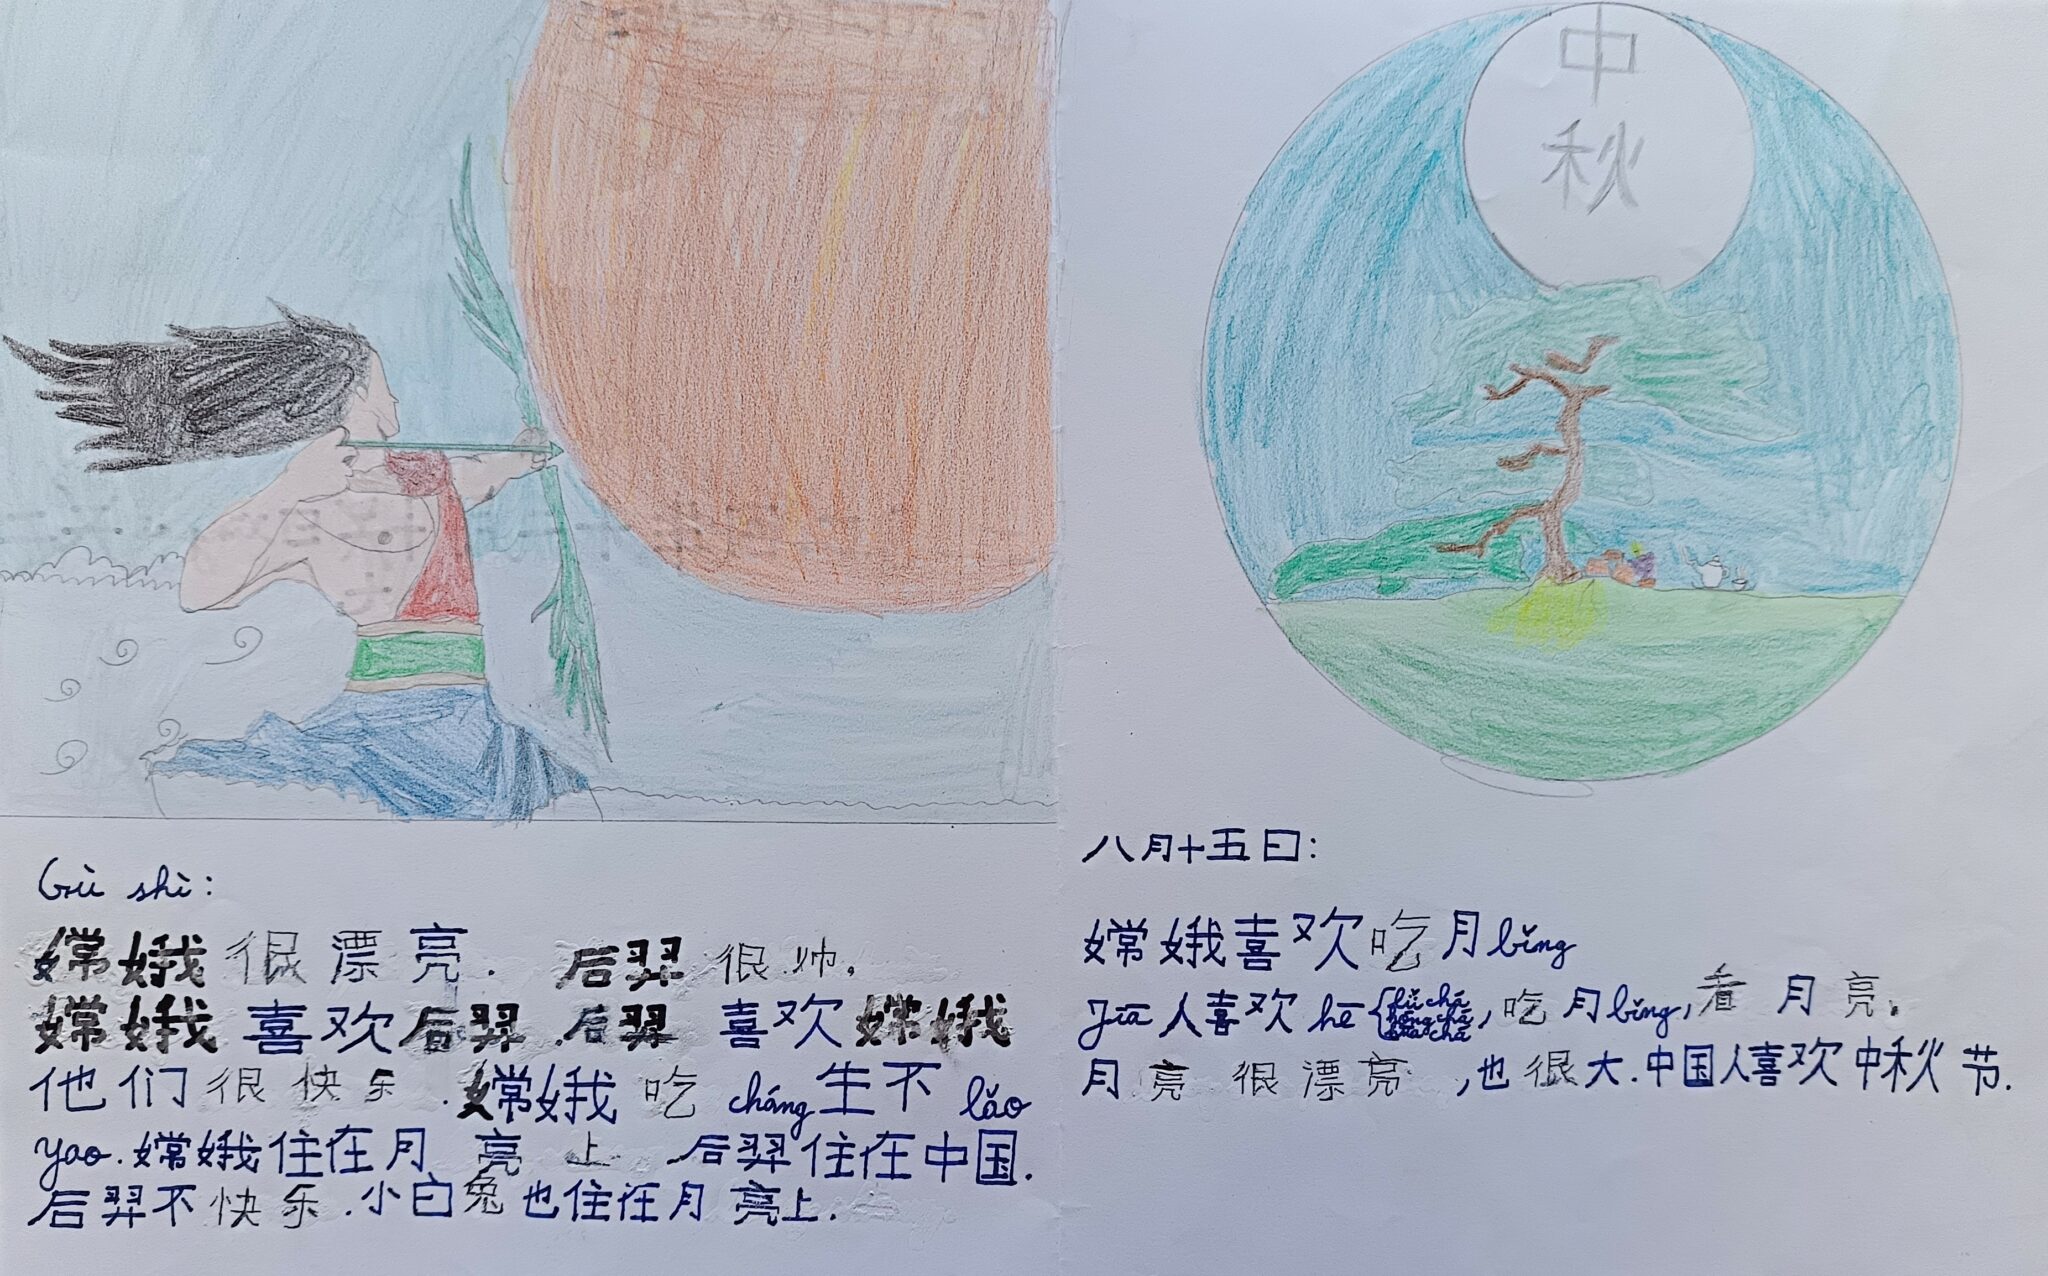 Gù shì:
嫦娥很漂亮. 后羿很帅。
嫦娥喜欢后羿.后羿喜欢嫦娥
他们很快乐.嫦娥吃cháng生不lǎo
yao.嫦娥住在月亮上.后羿住在中国.
后羿不快乐.小白兔也住在月亮上.
中
秋
八月十五日:
嫦娥喜欢吃月bǐng
Jiā人喜欢hē{lǜchá
hóngchá
huāchá,吃月bǐng,看月亮。
月亮很漂亮,也很大.中国人喜欢中秋节.